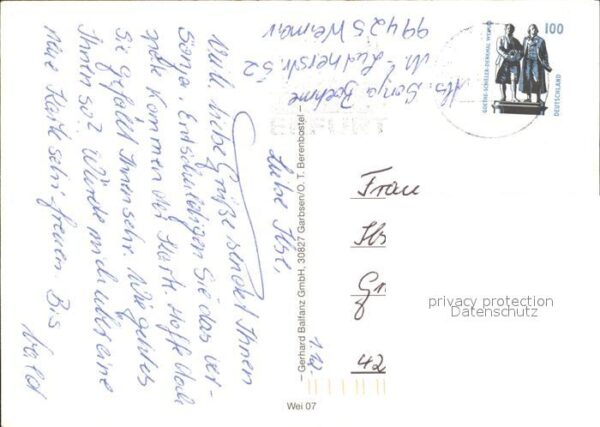 Liebe Ilse,
Viele liebe Grüße sendet Ihnen
Sonja. Entschuldigen Sie das ver-
späte Kommen der Karte. Hoffe doch
Sie gefällt Ihnen sehr. Wie geht es
Ihnen so? Würde mich über eine
neue Karte sehr freuen. Bis
bald
1.12.
Abs. Sonja Boehme
99425 Weimar
ERFURT
100
GOETHE-SCHILLER-DENKMAL WEIMAR
DEUTSCHLAND
– Gerhard Balfanz GmbH, 30827 Garbsen/O. T. Berenbostel –
Frau
Ils
Gr
42
privacy protection
Datenschutz
Wei 07